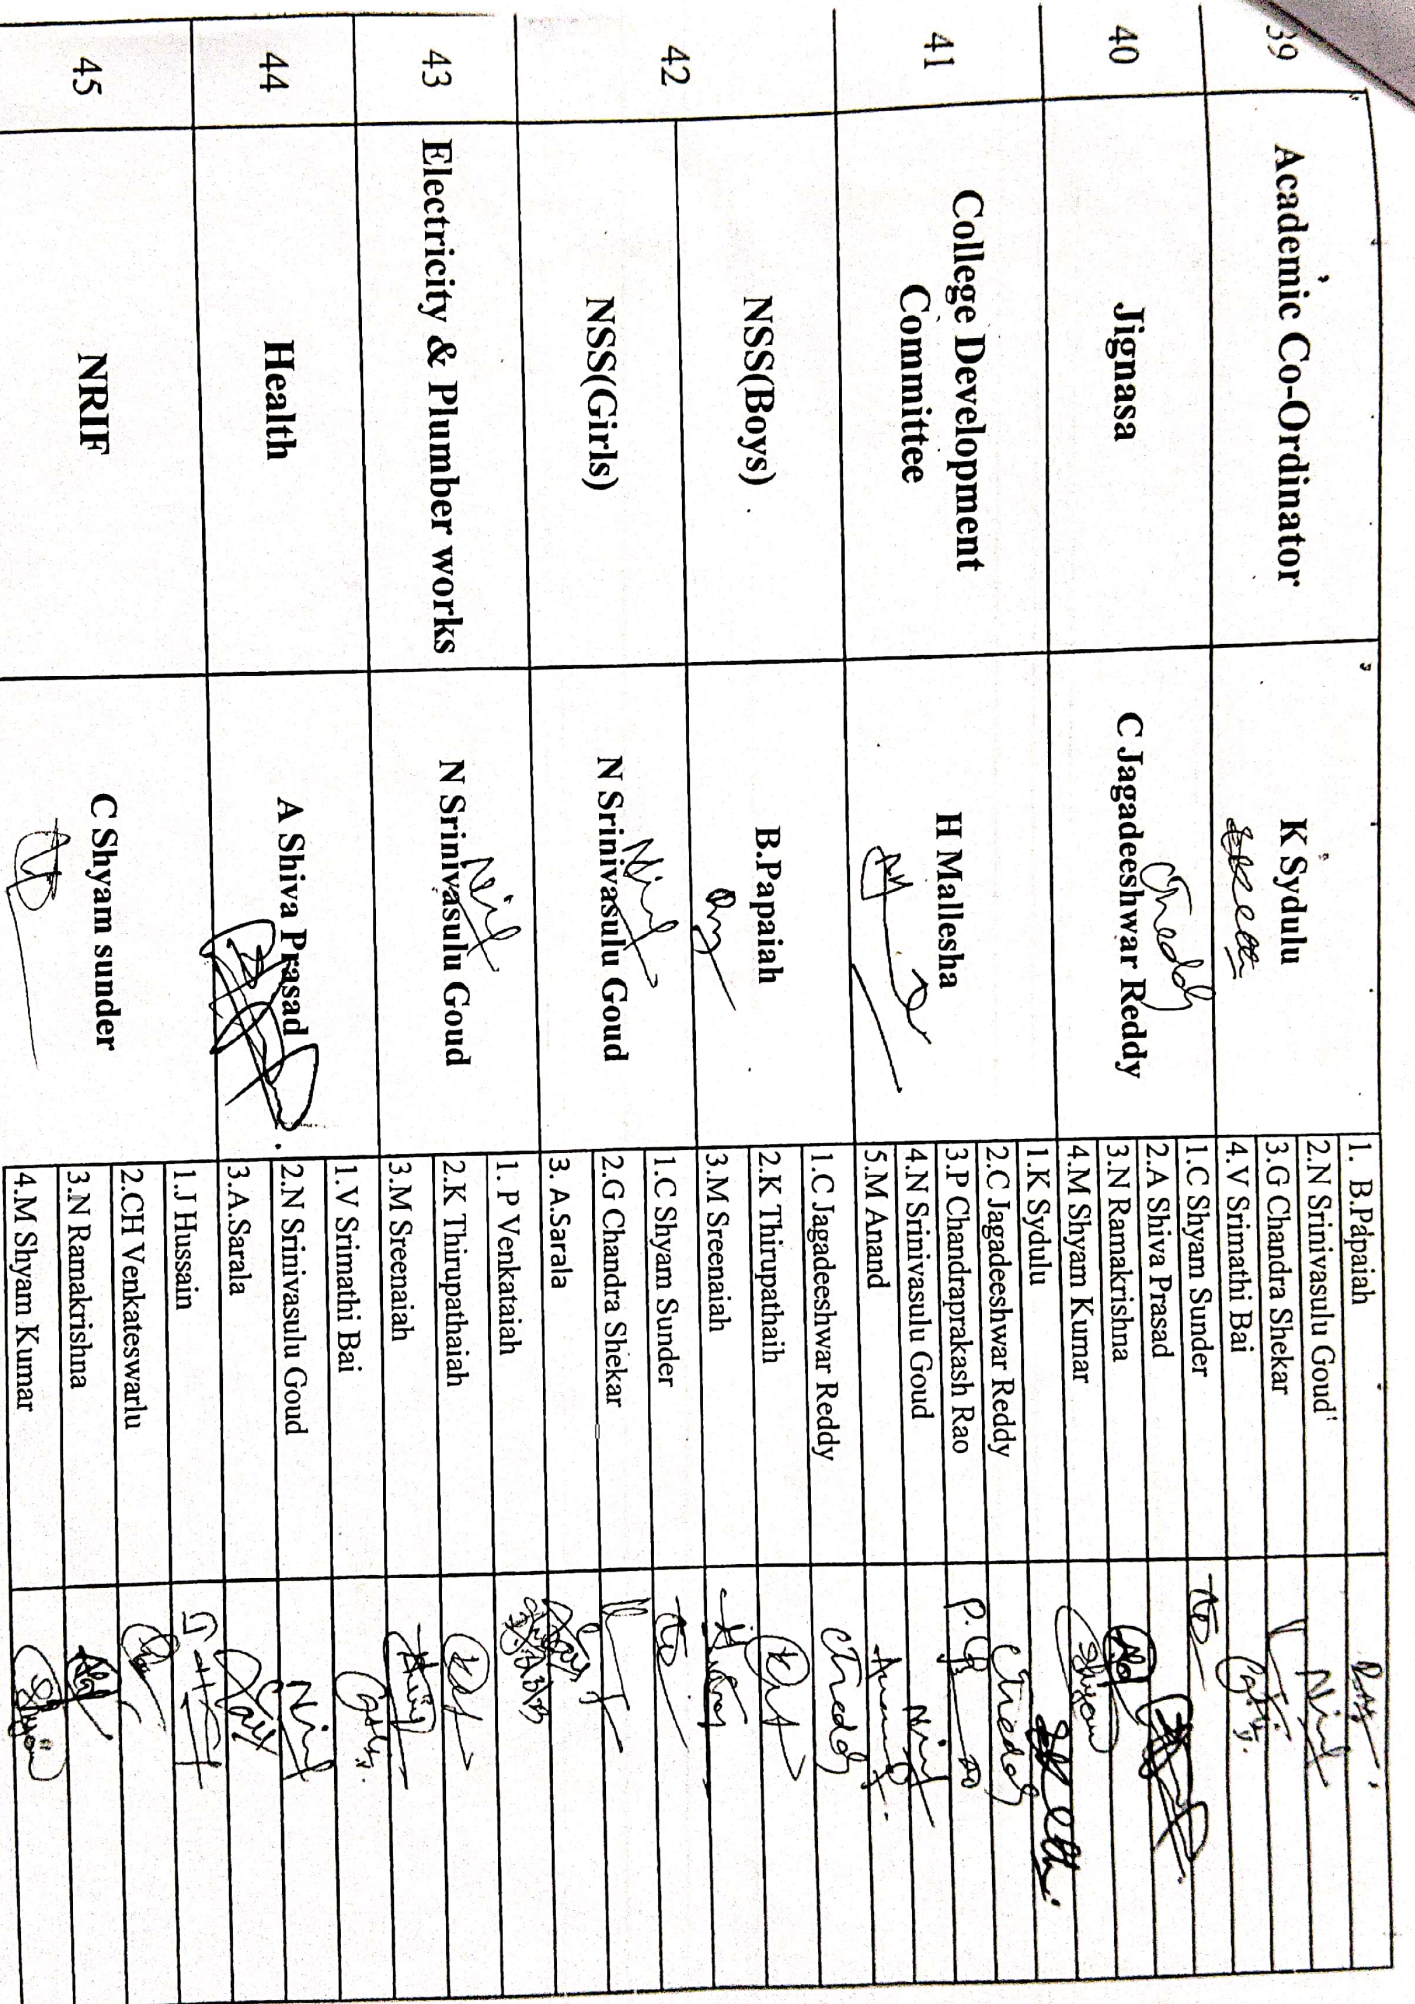 39
Academic Co-Ordinator
K Sydulu
1. B.Papaiah
2.N Srinivasulu Goud'
3.G Chandra Shekar
4.V Srimathi Bai
40
Jignasa
C Jagadeeshwar Reddy
CJReddy
1.C Shyam Sunder
2.A Shiva Prasad
3.N Ramakrishna
4.M Shyam Kumar
Shyam
41
College Development
Committee
H Mallesha
1.K Sydulu
2.C Jagadeeshwar Reddy
CJReddy
3.P Chandraprakash Rao
4.N Srinivasulu Goud
5.M Anand
Anand
42
NSS(Boys)
B.Papaiah
1.C Jagadeeshwar Reddy
CJReddy
2.K Thirupathaih
3.M Sreenaiah
NSS(Girls)
N Srinivasulu Goud
1.C Shyam Sunder
2.G Chandra Shekar
3. A.Sarala
43
Electricity & Plumber works
N Srinivasulu Goud
1. P Venkataiah
2.K Thirupathaiah
3.M Sreenaiah
44
Health
A Shiva Prasad
1.V Srimathi Bai
2.N Srinivasulu Goud
3.A.Sarala
45
NRIF
C Shyam sunder
1.J Hussain
2.CH Venkateswarlu
3.N Ramakrishna
4.M Shyam Kumar
Shyam